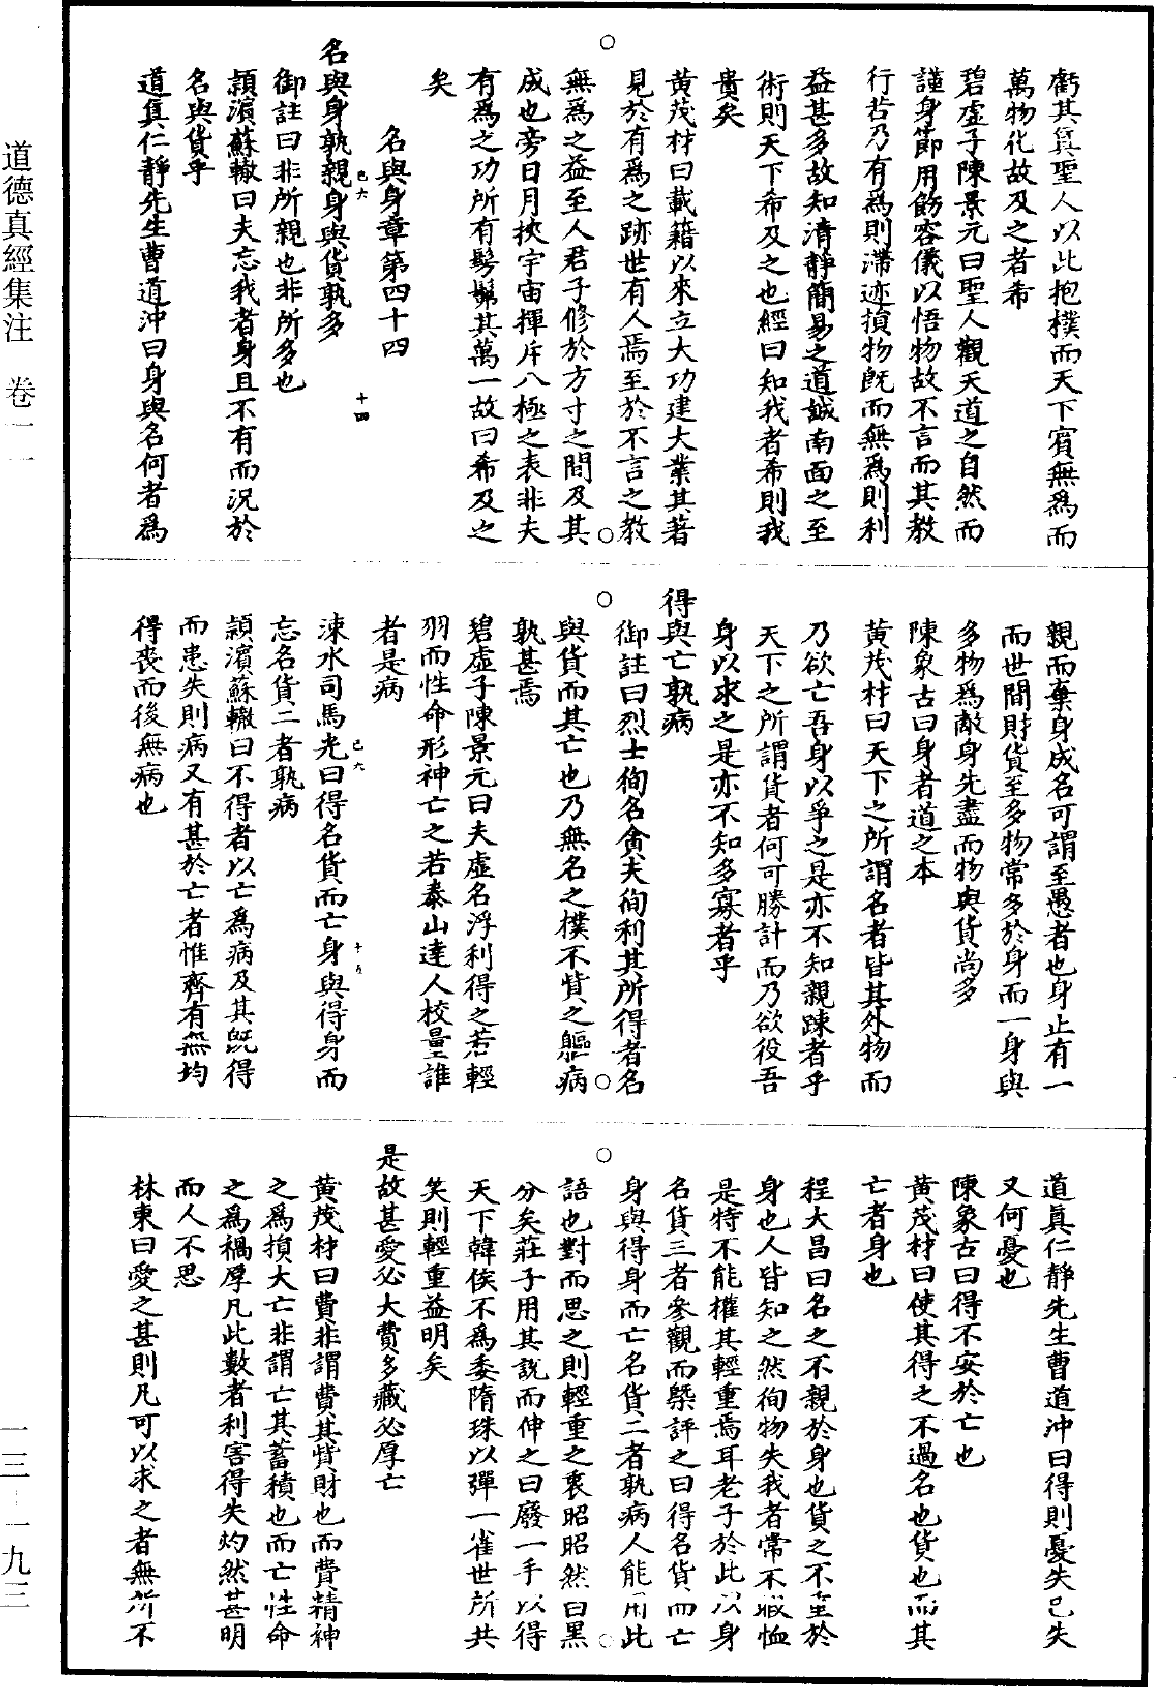 道德真經集注　卷一一
虧其真聖人以此抱樸而天下賓無爲而
萬物化故及之者希
碧虛子陳景元曰聖人觀天道之自然而
謹身節用飾容儀以悟物故不言而其教
行哲乃有爲則滯迹損物旣而無爲則利
益甚多故知清靜簡易之道誠南面之至
術則天下希及之也經曰知我者希則我
貴矣
黃茂材曰載籍以來立大功建大業其著
見於有爲之跡世有人焉至於不言之教
無爲之益至人君子修於方寸之間及其
成也旁日月挾宇宙揮斥八極之表非夫
有爲之功所有髣髴其萬一故曰希及之
矣
名與身章第四十四
名與身孰親身與貨孰多
御註曰非所親也非所多也
潁濱蘇轍曰夫忘我者身且不有而況於
名與貨乎
道真仁靜先生曹道沖曰身與名何者爲
親而棄身成名可謂至愚者也身止有一
而世間財貨至多物常多於身而一身與
多物爲敵身先盡而物與貨尚多
陳象古曰身者道之本
黃茂材曰天下之所謂名者皆其外物而
乃欲亡吾身以爭之是亦不知親踈者乎
天下之所謂貨者何可勝計而乃欲役吾
身以求之是亦不知多寡者乎
得與亡孰病
御註曰烈士徇名貪夫徇利其所得者名
與貨而其亡也乃無名之樸不貲之軀病
孰甚焉
碧虛子陳景元曰夫虛名浮利得之若輕
羽而性命形神亡之若泰山達人校量誰
者是病
涑水司馬光曰得名貨而亡身與得身而
忘名貨二者孰病
潁濱蘇轍曰不得者以亡爲病及其旣得
而患失則病又有甚於亡者惟齊有無均
得喪而後無病也
道真仁靜先生曹道沖曰得則憂失已失
又何憂也
陳象古曰得不安於亡也
黃茂材曰使其得之不過名也貨也而其
亡者身也
程大昌曰名之不親於身也貨之不重於
身也人皆知之然徇物失我者常不暇恤
是特不能權其輕重焉耳老子於此以身
名貨三者參觀而槩評之曰得名貨而亡
身與得身而亡名貨二者孰病人能用此
語也對而思之則輕重之衷昭昭然白黑
分矣莊子用其說而伸之曰廢一手以得
天下韓侯不爲委隋珠以彈一雀世所共
笑則輕重益明矣
是故甚愛必大費多藏必厚亡
黃茂材曰費非謂費其貲財也而費精神
之爲損大亡非謂亡其蓄積也而亡性命
之爲禍厚凡此數者利害得失灼然甚明
而人不思
林東曰愛之甚則凡可以求之者無所不
一三—一九三